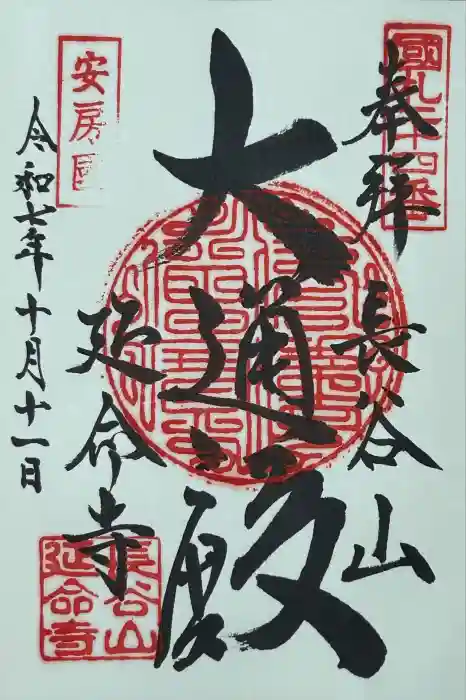 奉拝
長谷山
大通殿
延命寺
令和七年十月十一日
國札二十四番
安房國
長谷山
延命寺